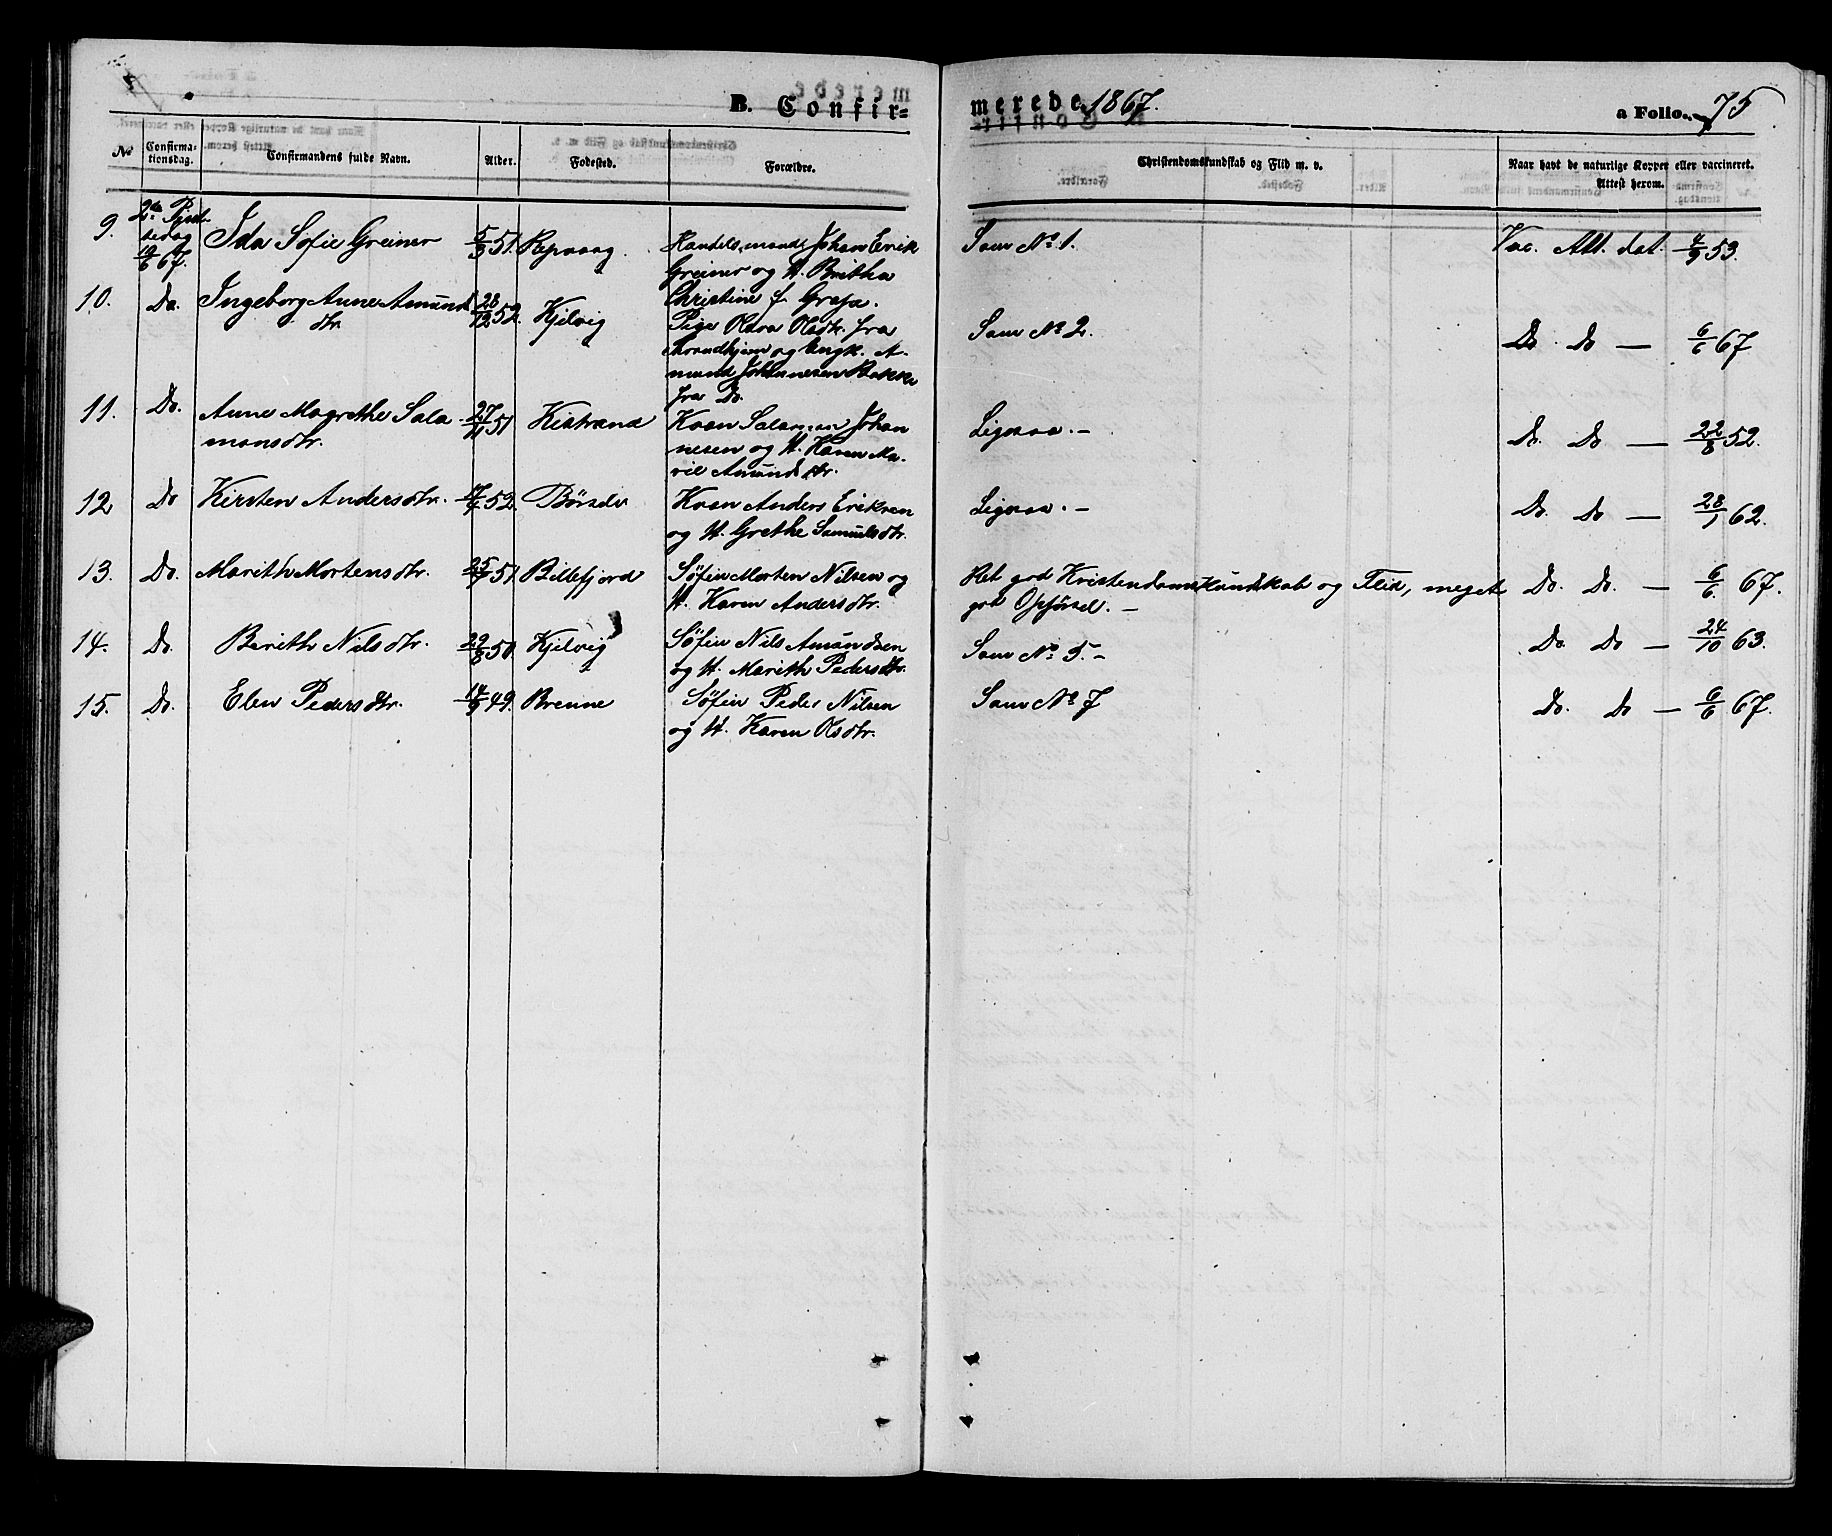 B. Confirmerede 1867. a Folio 75
No Confirmationsdag. Confirmandens fulde Navn. Alder. Fødested. Forældre. Christendomskundskab og Flid m. v. Naar havt de naturlige Kopper eller vaccineret. Attest herom.
9. 2den Pintsedag 10/6 67. Ida Sofie Greiner 5/3 51. Repvaag. Handelsmand Johan Erik Som No 1. Vac. Att. dat. 4/9 53.
Greiner og H. Britha
Christine f. Grape.
10. Do. Ingeborg Anne Amunds 28/12 52. Kjelvig Pige Olava Olsdtr. fra Som No 2. Do. Do — 6/6 67
dtr.
Throndhjem og Ungk. A-
mund Johannesen Bakke
fra Do.
11. Do. Anne Magrethe Sala 27/11 51 Kistrand Kvæn Salamon Johan Ligesaa. — Do. Do — 22/8 52.
monsdtr. nesen og H. Karen Ma-
rie Amundsdtr.
12 Do Kirsten Andersdtr. 52. Børselv Kvæn Anders Eriksen Ligesaa. — Do. Do — 28/1 62.
og H. Grethe Samuelsdtr.
13. Do. Marith Mortensdtr. 51. Billefjord Søfin Morten Nilsen og Ret god Kristendomskundskab og Flid, meget Do. Do. — 6/6 67.
H. Karen Andersdtr. god Opførsel. —
14. Do. Berith Nilsdtr. 22/8 50. Kjelvig Søfin Nils Amundsen Som No 5. — Do. Do — 24/10 63.
og H. Marith Pedersdtr.
15. Do. Elen Pedersdtr. 14/9 49. Brenne Søfin Peder Nilsen Som No 7 Do. Do — 6/6 67.
og H. Karen Olsdtr.